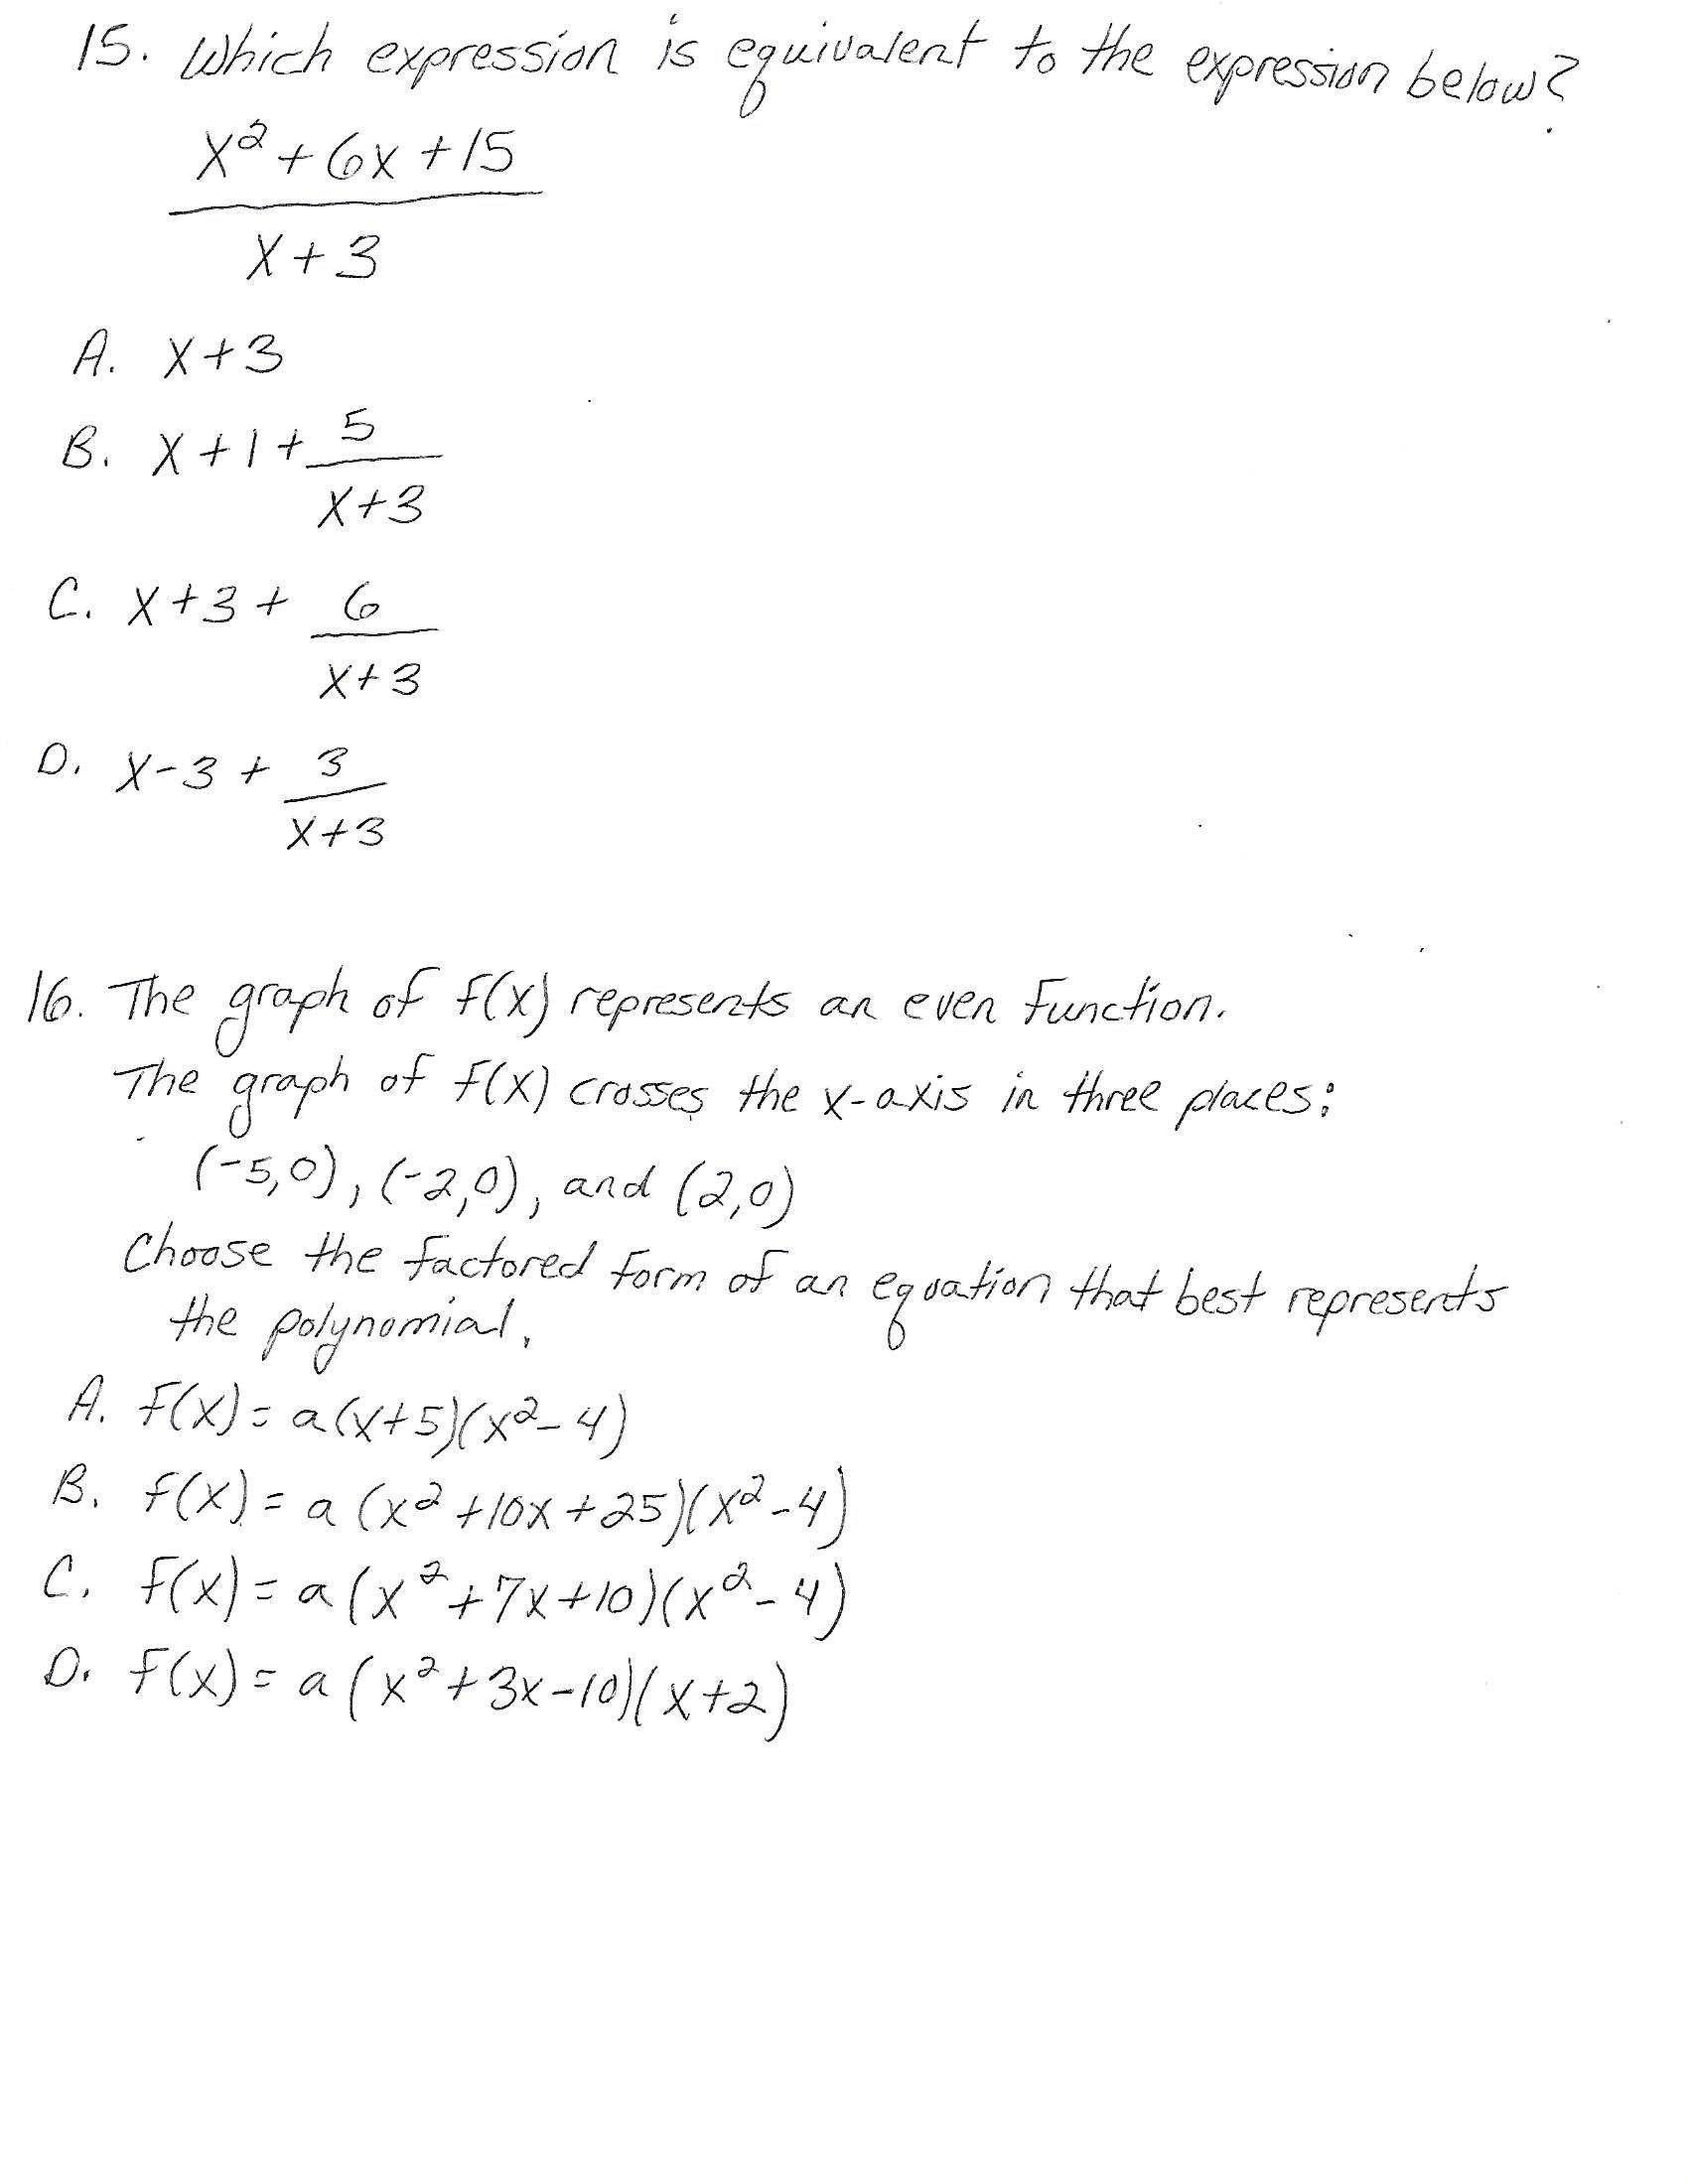 15. Which expression is equivalent to the expression below?
x²+6x+15
x+3
A. x+3
B. x+1+ 5
x+3
C. x+3+ 6
x+3
D. x-3+ 3
x+3
16. The graph of f(x) represents an even function.
The graph of f(x) crosses the x-axis in three places:
(-5,0), (-2,0), and (2,0)
Choose the factored form of an equation that best represents
the polynomial.
A. f(x)= a(x+5)(x²-4)
B. f(x)= a (x²+10x+25)(x²-4)
C. f(x)= a (x²+7x+10)(x²-4)
D. f(x)= a (x²+3x-10)(x+2)